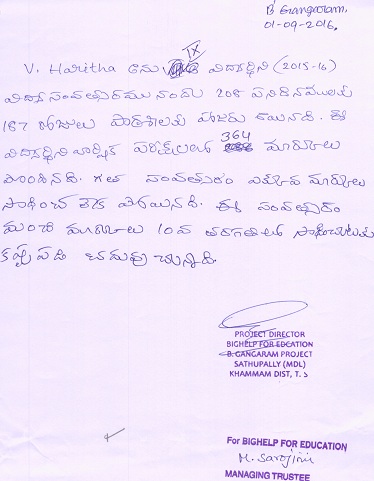 B Gangaram,
01-09-2016.
IX
V. Haritha అను విద్యార్థిని (2015-16)
విద్యా సంవత్సరము నందు 208 పనిదినములకు
187 రోజులు పాఠశాలకు హాజరు అయినది. ఈ
364
విద్యార్థిని వార్షిక పరీక్షలలో మార్కులు
పొందినది. గత సంవత్సరం ఎక్కువ మార్కులు
సాధించ లేక పోయినది. ఈ సంవత్సరం
మంచి మార్కులు 10వ తరగతిలో సాధించుటకు
కష్ట పడి చదువు చున్నది.
PROJECT DIRECTOR
BIGHELP FOR EDCATION
B. GANGARAM PROJECT
SATHUPALLY (MDL)
KHAMMAM DIST, T. S
For BIGHELP FOR EDUCATION
M. Sarojini
MANAGING TRUSTEE